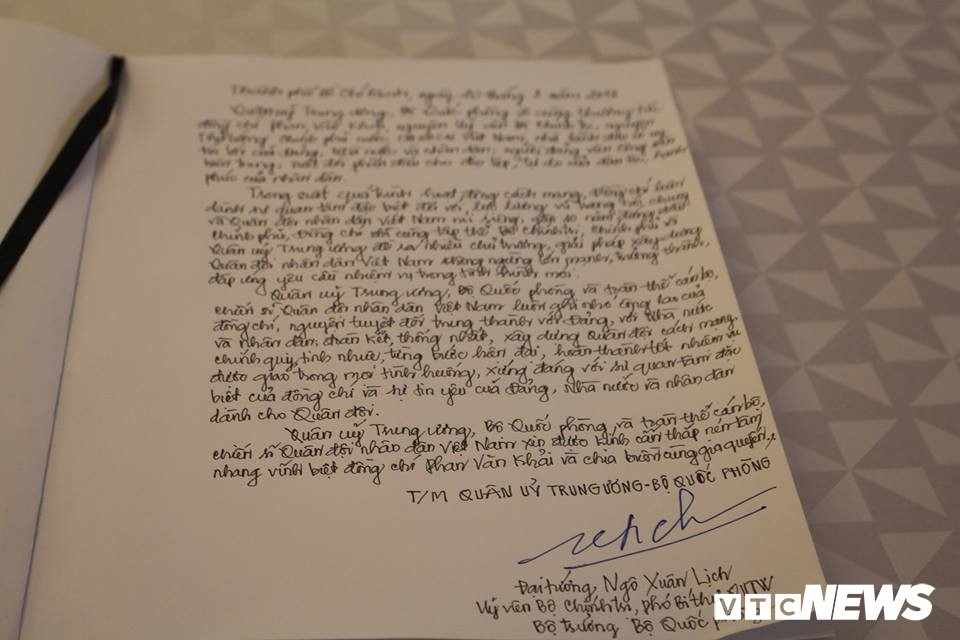 Thành phố Hồ Chí Minh, ngày 20 tháng 3 năm 2018
Quân uỷ Trung ương, Bộ Quốc phòng vô cùng thương tiếc
đồng chí Phan Văn Khải, nguyên Uỷ viên Bộ Chính trị, nguyên
Thủ tướng Chính phủ nước CHXHCN Việt Nam, nhà lãnh đạo có uy
tín lớn của Đảng, Nhà nước và nhân dân, người đảng viên cộng sản
kiên trung, suốt đời phấn đấu cho độc lập, tự do của dân tộc, hạnh
phúc của nhân dân.
Trong suốt quá trình hoạt động cách mạng, Đồng chí luôn
dành sự quan tâm đặc biệt đối với lực lượng vũ trang nói chung
và Quân đội nhân dân Việt Nam nói riêng, gần 10 năm đứng đầu
Chính phủ, Đồng chí đã cùng tập thể Bộ Chính trị, Chính phủ và
Quân uỷ Trung ương đề ra nhiều chủ trương, giải pháp xây dựng
Quân đội nhân dân Việt Nam không ngừng lớn mạnh, trưởng thành,
đáp ứng yêu cầu nhiệm vụ trong tình hình mới.
Quân uỷ Trung ương, Bộ Quốc phòng và toàn thể cán bộ,
chiến sĩ Quân đội nhân dân Việt Nam luôn ghi nhớ công lao của
đồng chí, nguyện tuyệt đối trung thành với Đảng, với Nhà nước
và nhân dân, đoàn kết, thống nhất, xây dựng Quân đội cách mạng,
chính quy, tinh nhuệ, từng bước hiện đại, hoàn thành tốt nhiệm vụ
được giao trong mọi tình huống, xứng đáng với sự quan tâm đặc
biệt của đồng chí và sự tin yêu của Đảng, Nhà nước và nhân dân
dành cho Quân đội.
Quân uỷ Trung ương, Bộ Quốc phòng và toàn thể cán bộ,
chiến sĩ Quân đội nhân dân Việt Nam xin được kính cẩn thắp nén tâm
nhang vĩnh biệt đồng chí Phan Văn Khải và chia buồn cùng gia quyến./.
T/M QUÂN UỶ TRUNG ƯƠNG - BỘ QUỐC PHÒNG
Đại tướng, Ngô Xuân Lịch
Uỷ viên Bộ Chính trị, phó Bí thư QUTW
Bộ trưởng Bộ Quốc
VTC NEWS